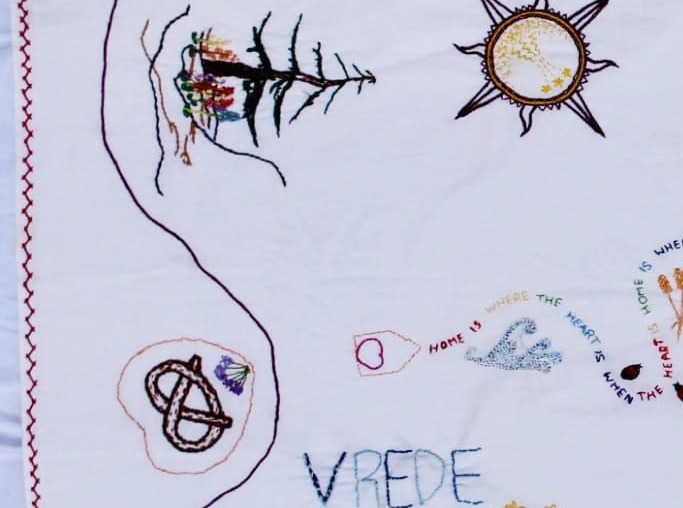 HOME IS WHERE THE HEART IS WHEN THE HEART IS HOME IS WHE
VREDE